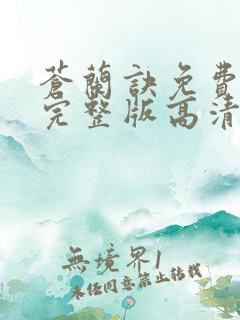 蒼蘭訣免費
完整版高清
無境界1
未经同意禁止转载